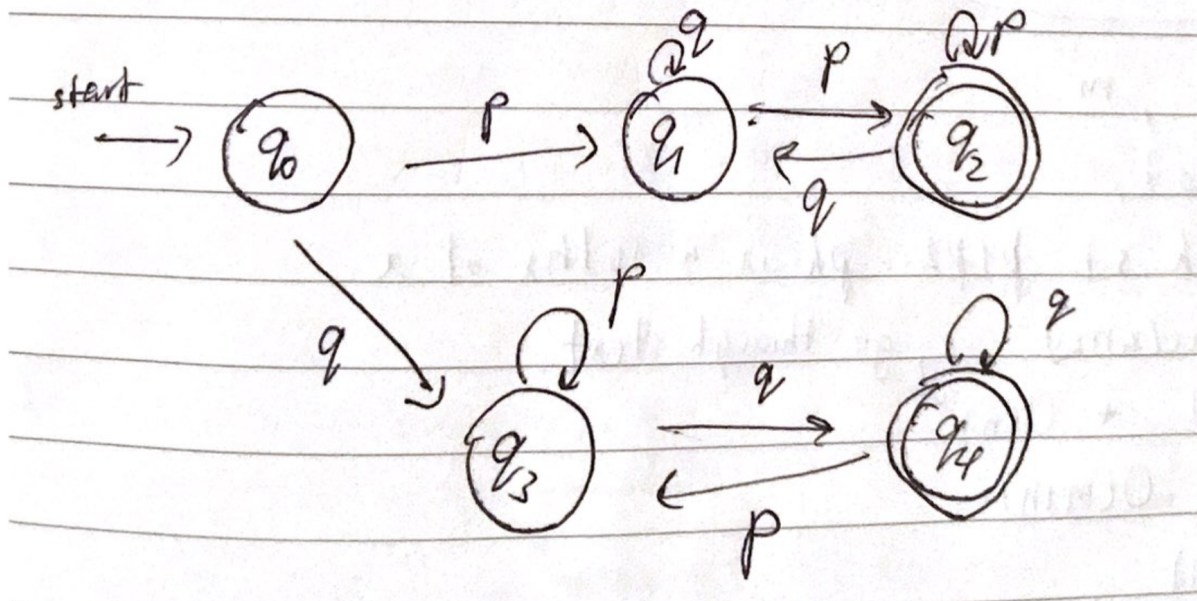 start
p
q₀
q
q₁
p
q
p
q₂
q
p
q₃
q
p
q
q₄